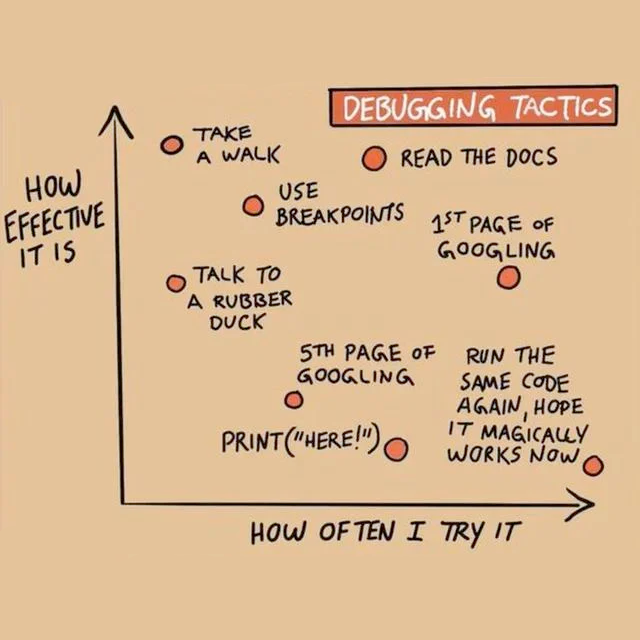 DEBUGGING TACTICS
HOW
EFFECTIVE
IT IS
TAKE
A WALK
READ THE DOCS
USE
BREAKPOINTS
1ST PAGE OF
GOOGLING
TALK TO
A RUBBER
DUCK
5TH PAGE OF
GOOGLING
RUN THE
SAME CODE
AGAIN, HOPE
IT MAGICALLY
WORKS NOW
PRINT("HERE!")
HOW OFTEN I TRY IT